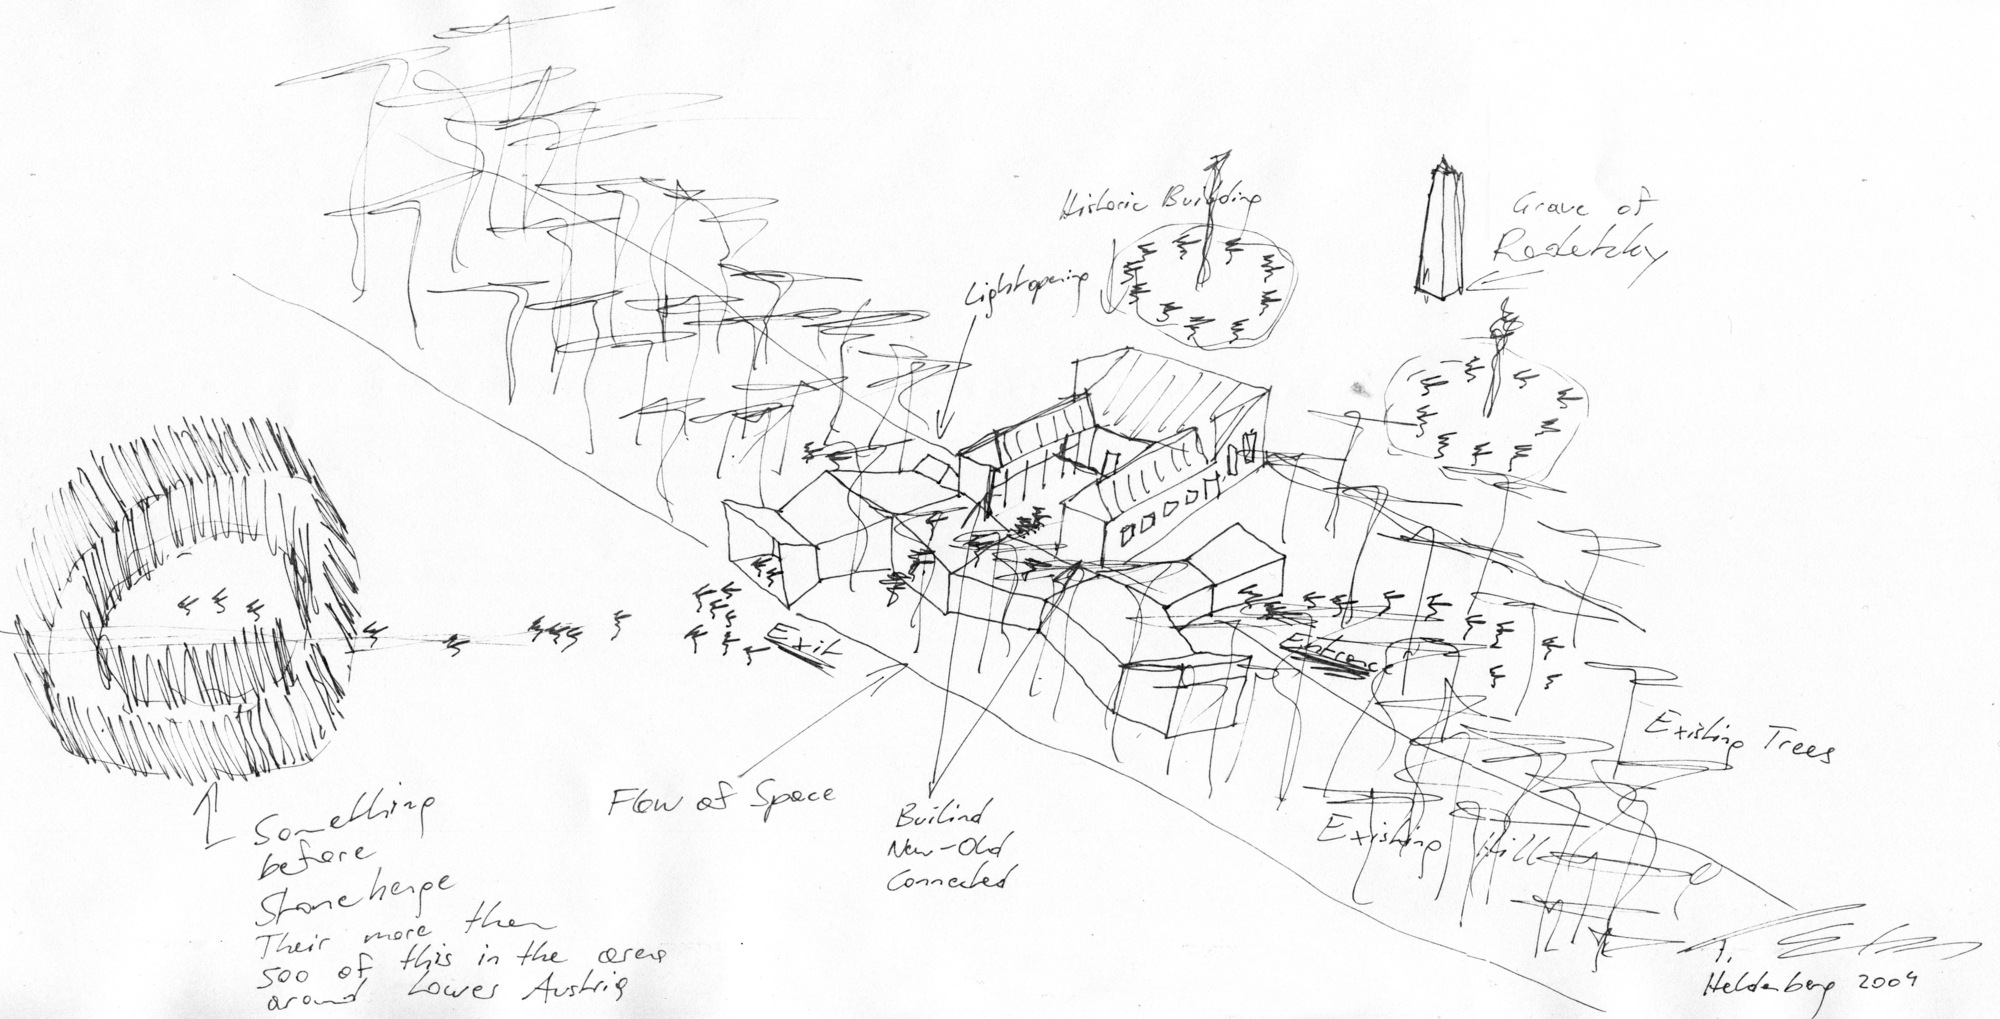 Historic Building
Grave of
Radetzky
Lightopening
Exit
Entrance
Existing Trees
Flow of Space
Builind
New-Old
Connected
Existing Hill
Something
before
Stonehenge
Their more then
500 of this in the area
around Lower Austria
Heldenberg 2004